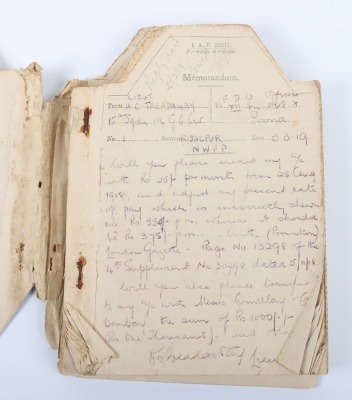 I. A. F. Z2011.
Memorandum.
Lieut
FROM H. C. Treadaway
TO
15th Sqdn M G Corps
Poona
No. 1
Risalpur
Date 3.3.19
N W F P
Will you please credit my a/c
with Rs 25/- per month from 28 Aug
1918, and adjust my present rate
of pay which is incorrectly shewn
as Rs 350/- p.m. whereas it should
be Rs 375/- p.m. Auth (Promotion)
London Gazette. Page No 13298 of the
4th Supplement No dated 5/11/18
Will you also please transfer
to my a/c with Messrs Grindlay & Co
Bombay the sum of Rs 1000/-
Rs One Thousand). and
H C Treadaway Lieut